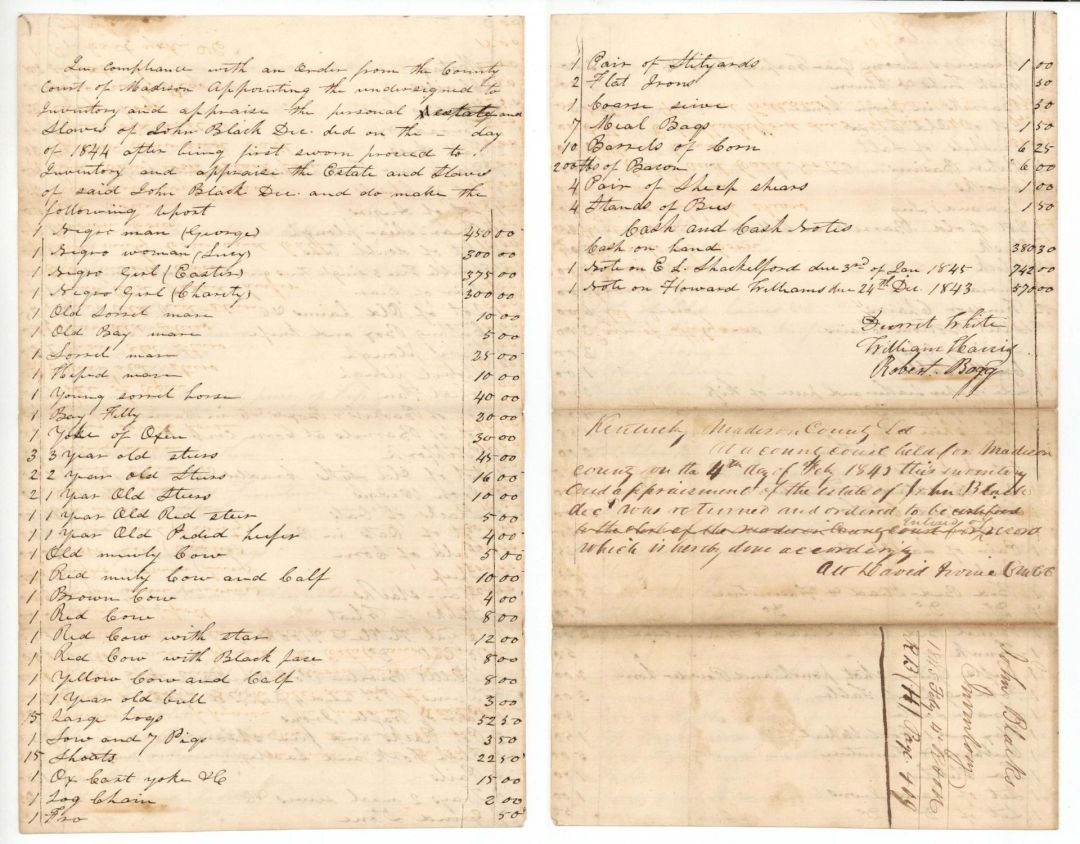 In compliance with an Order from the County
Court of Madison Appointing the undersigned to
Inventory and appraise the personal estate and
Slaves of John Black Dec. ded on the - day
of 1844 after being first sworn proceed to
Inventory and appraise the Estate and Slaves
of said John Black Dec. and do make the
following report
1 Negro man (George) 450 00
1 Negro woman (Lucy) 300 00
1 Negro Girl (Easter) 375 00
1 Negro Girl (Charity) 300 00
1 Old Sorrel mare 10 00
1 Old Bay mare 5 00
1 Sorrel mare 25 00
1 Heped mare 10 00
1 Young sorrel horse 40 00
1 Bay Filly 20 00
1 Yoke of Oxen 30 00
3 3 year old steers 45 00
2 2 Year old Steers 16 00
2 1 Year Old Steers 10 00
1 1 Year Old Red steer 5 00
1 1 Year Old Pided heifer 4 00
1 Old muly Cow 5 00
1 Red muly Cow and Calf 10 00
1 Brown Cow 4 00
1 Red Cow 8 00
1 Red Cow with star 12 00
1 Red Cow with Black face 8 00
1 Yellow Cow and Calf 8 00
1 1 Year old bull 3 00
15 Large hogs 52 50
1 Sow and 7 Pigs 3 50
15 Shoats 22 50
1 Ox Cart yoke &C 15 00
1 Log Chain 2 00
1 Fro 50
1 Pair of Stilyards 1 00
2 Flat Irons 50
1 Coarse sive 50
7 Meal Bags 1 50
10 Barrels of Corn 6 25
200 lbs of Bacon 6 00
4 Pair of Sheep shears 1 00
4 Stands of Bees 1 50
Cash and Cash Notes
Cash on hand 380 30
1 Note on E L. Shackelford due 3rd of Jan 1845 742 00
1 Note on Howard Williams due 24th Dec. 1843 570 00
Durret White
William Harris
Robert Bogg
Kentucky Madison County Sct
At a county court held for Madison
county on the 4th day of Feby 1845 this inventory
and appraisment of the estate of John Black
decd was returned and ordered to be certified
to the clerk of the madison County court for entered of record
which is hereby done accordingly
Att David Irvine CMCC
John Blacks
Inventory
1845 Feby.
Page 419